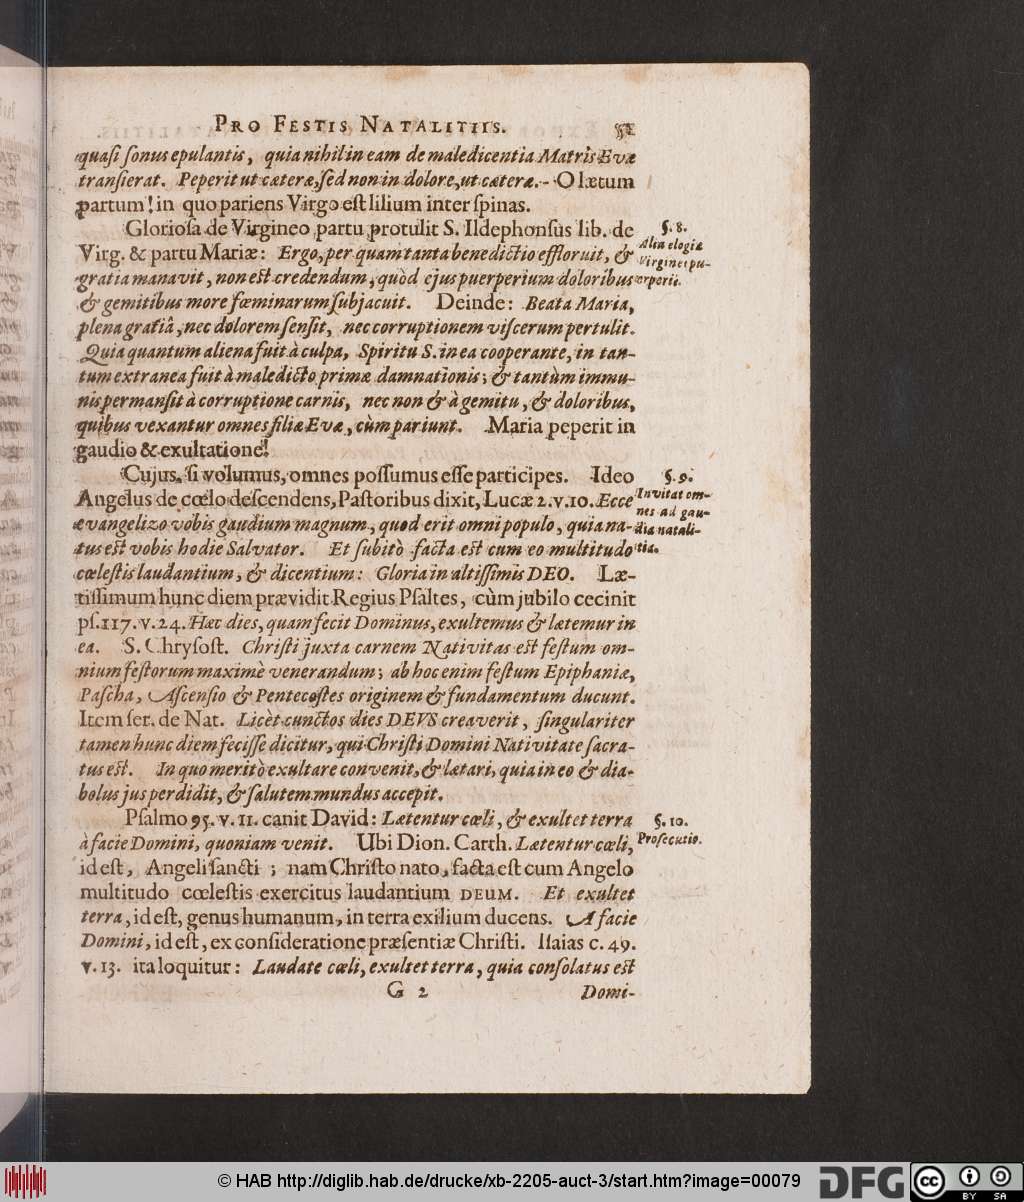 PRO FESTIS NATALITIIS.
quaſi ſonus epulantis, quia nihil in eam de maledicentia Matris Evæ
tranſierat. Peperit ut cæteræ, ſed non in dolore, ut cæteræ. - O lætum
partum! in quo pariens Virgo eſt lilium inter ſpinas.
Glorioſa de Virgineo partu protulit S. Ildephonſus lib. de
Virg. & partu Mariæ: Ergo, per quam tanta benedictio effloruit, &
gratia manavit, non eſt credendum, quòd ejus puerperium doloribus
& gemitibus more fœminarum ſubjacuit. Deinde: Beata Maria,
plena gratiâ, nec dolorem ſenſit, nec corruptionem viſcerum pertulit.
Quia quantum aliena fuit à culpa, Spiritu S. in ea cooperante, in tan-
tum extranea fuit à maledicto primæ damnationis; & tantùm immu-
nis permanſit à corruptione carnis, nec non & à gemitu, & doloribus,
quibus vexantur omnes filiæ Evæ, cùm pariunt. Maria peperit in
gaudio & exultatione!
§. 8.
Alia elogia
Virginei pu-
erperii.
Cujus, ſi volumus, omnes poſſumus eſſe participes. Ideo
Angelus de cœlo deſcendens, Paſtoribus dixit, Lucæ 2. v. 10. Ecce
evangelizo vobis gaudium magnum, quod erit omni populo, quia na-
tus eſt vobis hodie Salvator. Et ſubitò facta eſt cum eo multitudo
cœleſtis laudantium, & dicentium: Gloria in altiſſimis DEO. Læ-
tiſſimum hunc diem prævidit Regius Pſaltes, cùm jubilo cecinit
pſ. 117. v. 24. Hæc dies, quam fecit Dominus, exultemus & lætemur in
ea. S. Chryſoſt. Chriſti juxta carnem Nativitas eſt feſtum om-
nium feſtorum maximè venerandum; ab hoc enim feſtum Epiphaniæ,
Paſcha, Aſcenſio & Pentecoſtes originem & fundamentum ducunt.
Item ſer. de Nat. Licèt cunctos dies DEVS creaverit, ſingulariter
tamen hunc diem feciſſe dicitur, qui Chriſti Domini Nativitate ſacra-
tus eſt. In quo meritò exultare convenit, & lætari, quia in eo & dia-
bolus jus perdidit, & ſalutem mundus accepit.
§. 9.
Invitat om-
nes ad gau-
dia natali-
tia.
Pſalmo 95. v. 11. canit David: Lætentur cœli, & exultet terra
à facie Domini, quoniam venit. Ubi Dion. Carth. Lætentur cœli,
id eſt, Angeli ſancti ; nam Chriſto nato, facta eſt cum Angelo
multitudo cœleſtis exercitus laudantium DEUM. Et exultet
terra, id eſt, genus humanum, in terra exilium ducens. A facie
Domini, id eſt, ex conſideratione præſentiæ Chriſti. Iſaias c. 49.
v. 13. ita loquitur: Laudate cœli, exultet terra, quia conſolatus eſt
§. 10.
Proſecutio.
G 2
Domi-
© HAB http://diglib.hab.de/drucke/xb-2205-auct-3/start.htm?image=00079
DFG
cc
BY SA